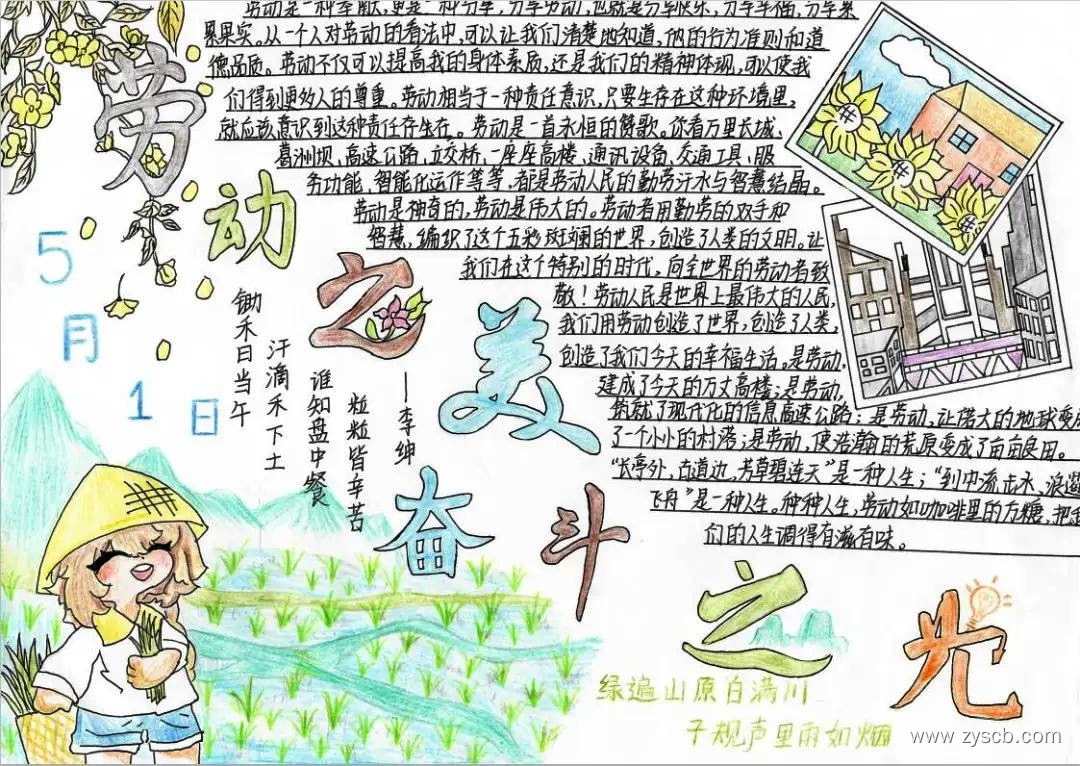 劳动之美
奋斗之光
5月1日
劳动是一种奉献,更是一种分享,分享劳动,也就是分享快乐,分享幸福,分享累
累果实。从一个人对劳动的看法中,可以让我们清楚地知道,他的行为准则和道
德品质。劳动不仅可以提高我的身体素质,还是我们的精神体现,可以使我
们得到更多人的尊重。劳动相当于一种责任意识,只要生存在这种环境里,
就应该意识到这种责任存生在。劳动是一首永恒的赞歌。你看万里长城、
葛洲坝,高速公路,立交桥,一座座高楼,通讯设备、交通工具、服
务功能,智能化运作等等,都是劳动人民的勤劳汗水与智慧结晶。
劳动是神奇的,劳动是伟大的。劳动者用勤劳的双手和
智慧,编织了这个五彩斑斓的世界,创造了人类的文明。让
我们在这个特别的时代,向全世界的劳动者致
敬!劳动人民是世界上最伟大的人民,
我们用劳动创造了世界,创造了人类,
创造了我们今天的幸福生活。是劳动,
建成了今天的万丈高楼;是劳动,
筑就了现代化的信息高速公路;是劳动,让偌大的地球变成
了一个小小的村落;是劳动,使浩瀚的荒原变成了亩亩良田。
“长亭外,古道边,芳草碧连天”是一种人生;“到中流击水,浪遏
飞舟”是一种人生。种种人生,劳动如咖啡里的方糖,把
们的人生调得有滋有味。
锄禾日当午
汗滴禾下土
谁知盘中餐
粒粒皆辛苦
——李绅
绿遍山原白满川
子规声里雨如烟
www.zyscb.com